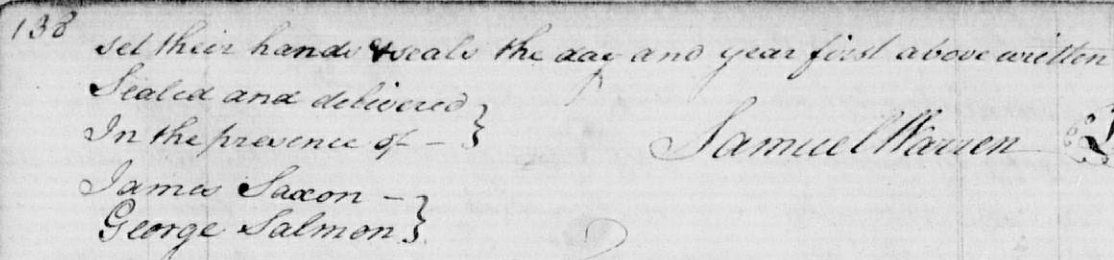 138
set their hands & seals the day and year first above written
Sealed and delivered }
In the presence of – } Samuel Warren
James Saxon – }
George Salmon }